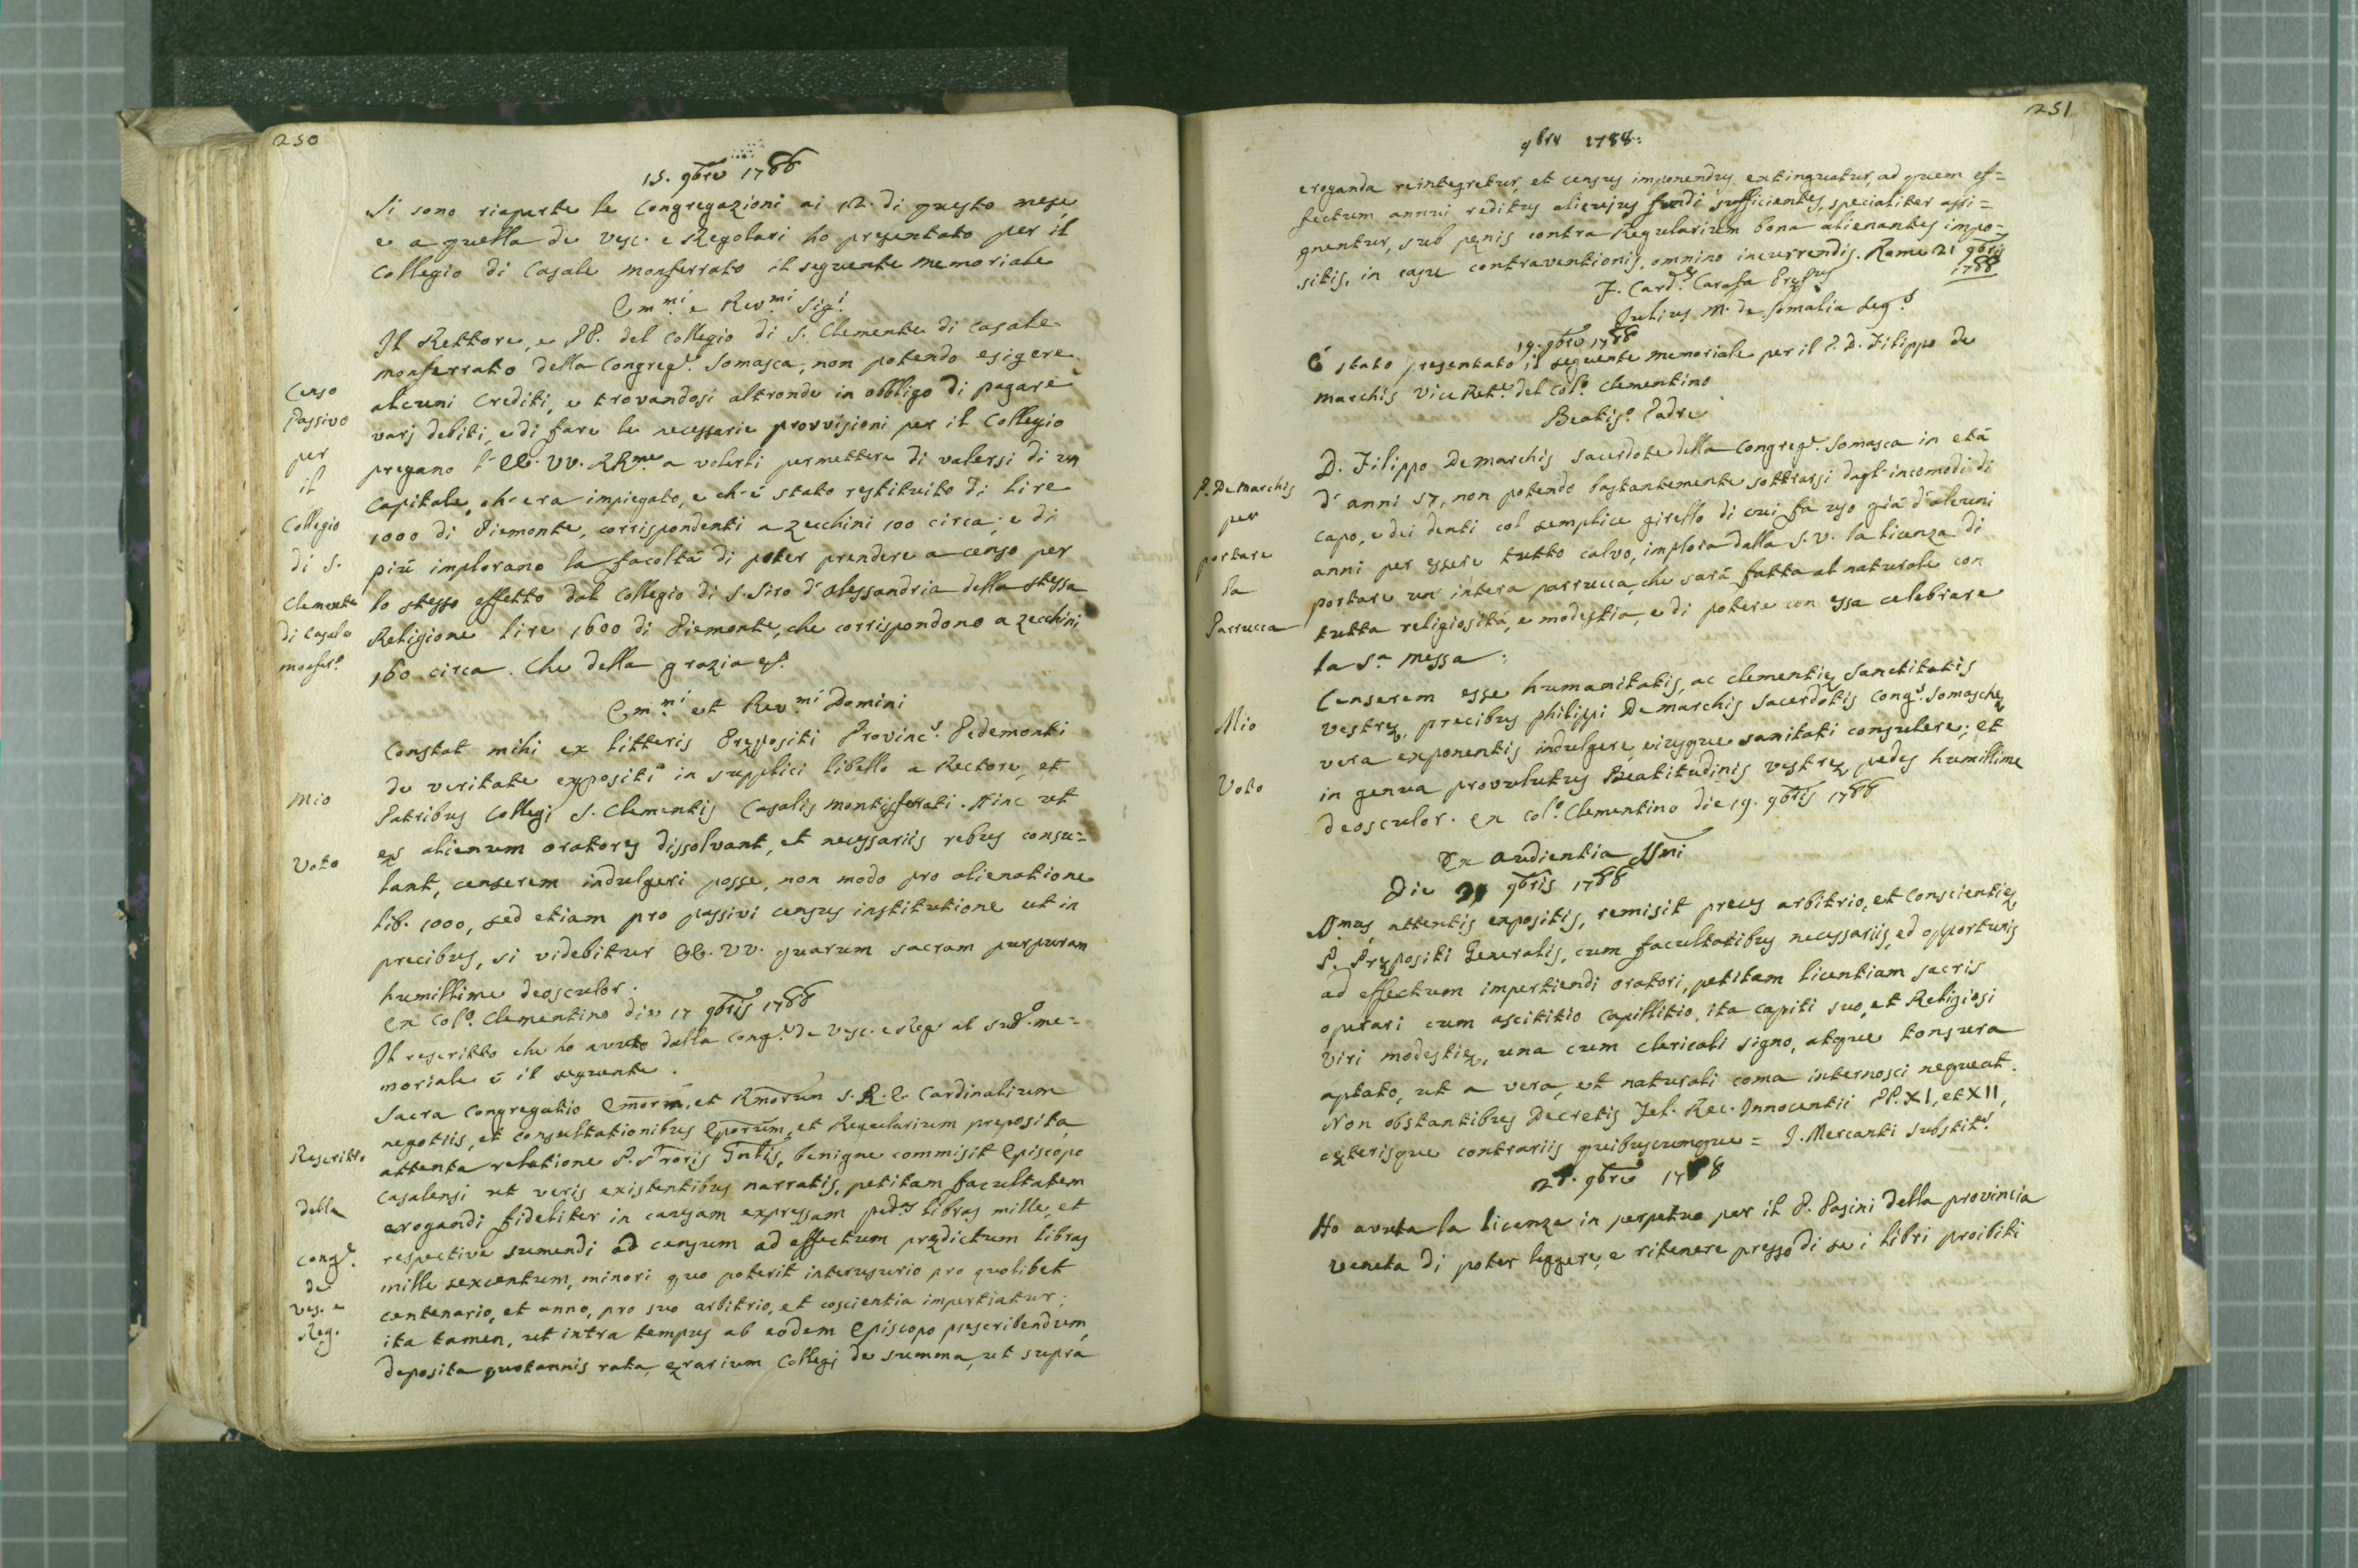 250
15. 9bre 1788
Si sono riaperte le Congregazioni ai 12. di questo mese,
e a quella de Vesc. e Regolari ho presentato per il
Collegio di Casale Monferrato il seguente memoriale
Em.mi e Rev.mi Sig.i
Il Rettore, e PP. del Collegio di S. Clemente di Casale-
monferrato della Congreg.e Somasca, non potendo esigere
alcuni Crediti, e trovandosi altronde in obbligo di pagare
varj debiti, e di fare le necessarie provvisioni per il Collegio
pregano l'EE. VV. RR.me a volerli permettere di valersi di un
Capitale, ch'era impiegato, e ch'é stato restituito di lire
1000 di Piemonte, corrispondenti a zecchini 100 circa; e di
piú implorano la facoltá di poter prendere a censo per
lo stesso effetto dal Collegio di S. Siro d'Alessandria della stessa
Religione lire 1600 di Piemonte, che corrispondono a zecchini
160 circa. Che della grazia &.
Censo
Passivo
per
il
Collegio
di S.
Clemente
di Casale
monfer.o
Em.mi et Rev.mi Domini
Constat mihi ex litteris Prępositi Provinc.s Pedemonti
de veritate expositi in supplici libello a Rectore, et
Patribus Collegi S. Clementis Casalis Montisferrati. Hinc ut
ęs alienum oratores dissolvant, et necessariis rebus consu=
lant, censerem indulgeri posse, non modo pro alienatione
lib. 1000, sed etiam pro passivi census institutione ut in
precibus, si videbitur EE. VV. quarum sacram purpuram
humillime deosculor.
Ex Col.o Clementino die 17 9bris 1788
Mio
Voto
Il rescritto che ho avuto dalla Cong.e de Vesc. e Reg. al sud.o me=
moriale é il seguente.
Sacra Congregatio Emorum, et Rmorum S. R. E. Cardinalium
negotiis, et consultationibus Eporum, et Regularium preposita,
attenta relatione P. Proris Gnlis, benigne commisit Episcopo
Casalensi ut veris existentibus narratis, petitam facultatem
erogandi fideliter in causam expressam pred.s libras mille, et
respective sumendi ad censum ad effectum prędictum libras
mille sexcentum, minori quo poterit interusurio pro quolibet
centenario, et anno, pro suo arbitrio, et coscientia impertiatur;
ita tamen, ut intra tempus ab eodem Episcopo prescribendum,
deposita quotannis rata, ęrarium Collegj de summa, ut supra
Rescritto
della
Cong.e
de
Ves. e
Reg.
251
9bre 1788:
eroganda reintegretur, et census imponendus extinguatur, ad quem ef=
fectum annui reditus alicujus fundi sufficientes, specialiter assi=
gnentur, sub pęnis contra Regularium bona alienantes impo=
sitis, in casu contraventionis, omnino incurrendis. Rome 21 9bris
1788
F. Card.s Carafa Pręfus
Julius M. de Somalia Seg.s
19. 9bre 1788
É stato presentato il seguente memoriale per il P. D. Filippo de
marchis Vice Ret.e del Col.o Clementino
Beatis.o Padre
D. Filippo Demarchis Sacerdote della Congreg.e Somasca in etá
d'anni 57, non potendo bastantemente sottrarsi dagl'incomodi di
capo, e dei denti col semplice girello di cui fa uso giá d'alcuni
anni per essere tutto calvo, implora dalla S. V. la licenza di
portare un' intera parrucca, che sará fatta al naturale con
tutta religiositá, e modestia, e di potere con essa celebrare
la S.a Messa.
P. Demarchis
per
portare
la
Parrucca
Censerem esse humanitatis, ac clementię Sanctitatis
Vestrę, precibus Philippi Demarchis Sacerdotis Cong.s Somaschę
vera exponentis indulgere, eiusque sanitati consulere; et
in genua provolutus Beatitudinis Vestrę pedes humillime
deosculor. Ex Col.o Clementino die 19. 9bris 1788
Mio
Voto
Ex Audientia SSmi
Die 21 9bris 1788
SSmus, attentis expositis, remisit preces arbitrio, et conscientię
P. Prępositi Generalis, cum facultatibus necessariis, ed opportunis
ad effectum impertiendi oratori, petitam licentiam sacris
operari cum ascititio capillitio, ita capiti suo, et Religiosi
viri modestię, una cum clericali signo, atque tonsura
aptato, ut a vera, et naturali coma internosci nequeat.
Non obstantibus Decretis Fel. Rec. Innocentii PP. XI, et XII,
cęterisque contrariis quibuscumque = J. Mercanti Substit.s
27. 9bre 1788
Ho avuta la licenza in perpetuo per il P. Pasini della provincia
veneta di poter leggere, e ritenere presso di se i libri proibiti